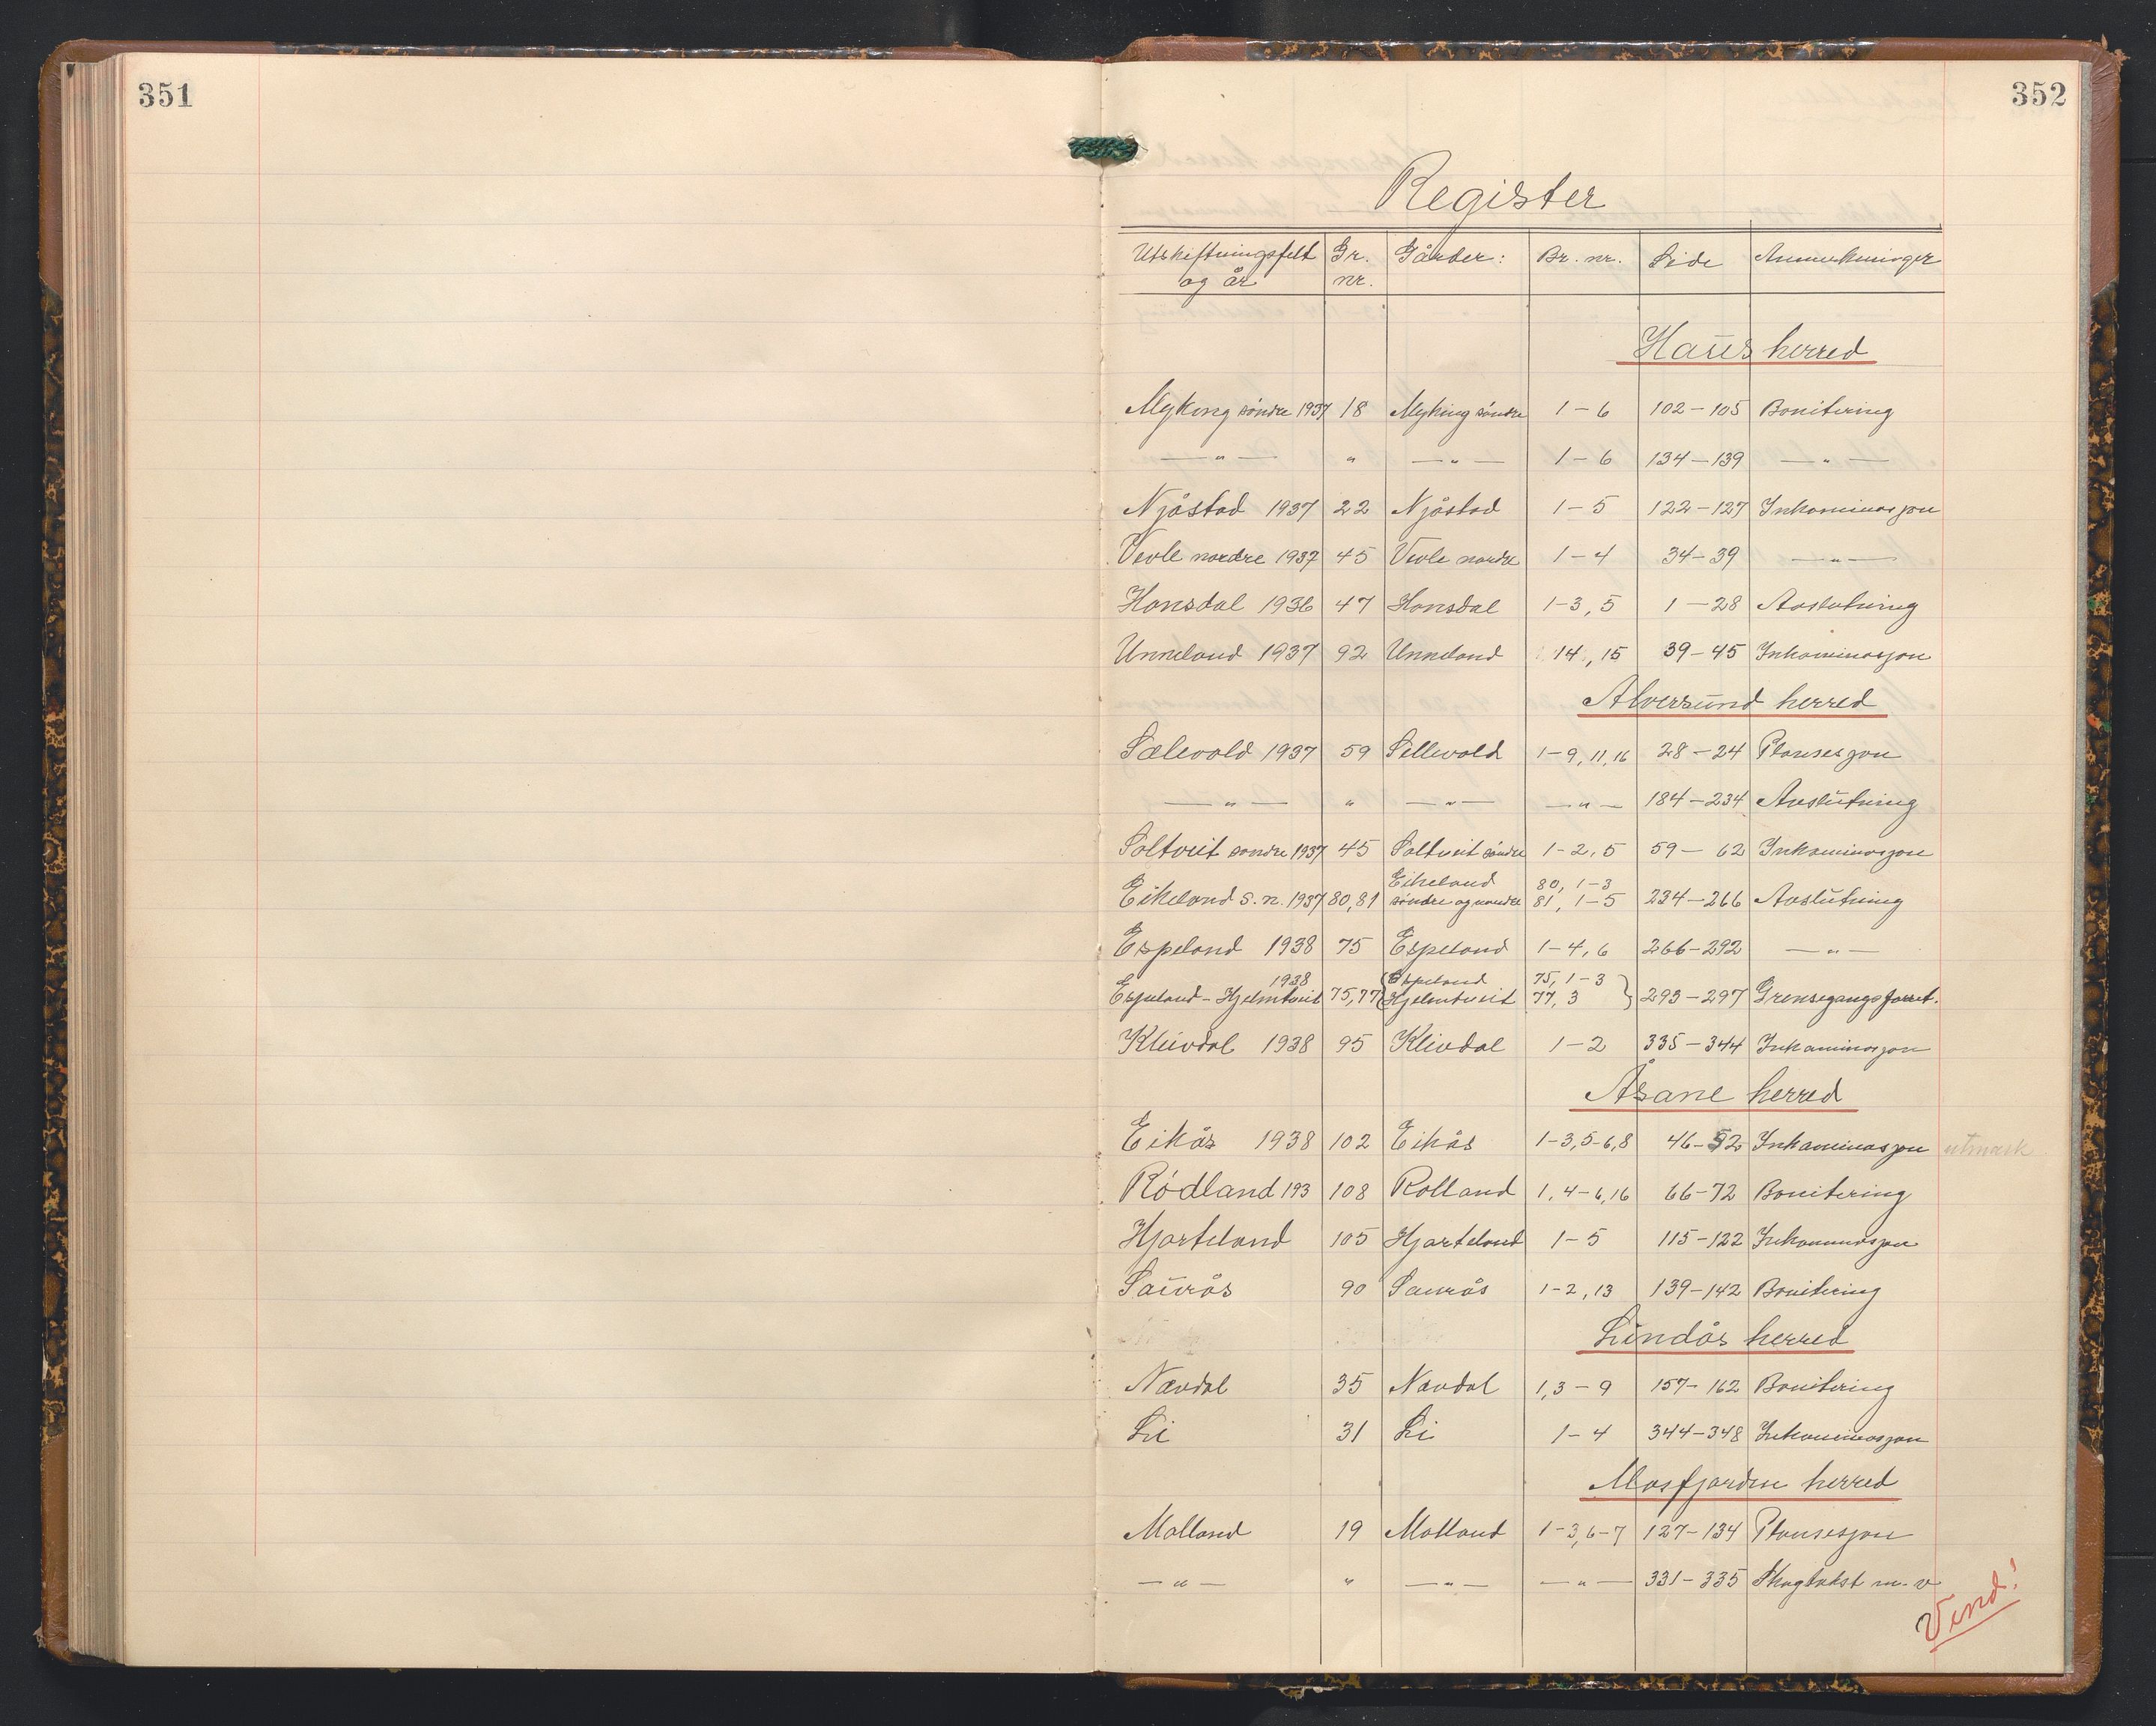 351
352
Register
Utskiftningsfelt og år Gr. nr. Gårder: Br. nr. Side Anmerkninger
Haus herred
Myking söndre 1937 18 Myking söndre 1-6 102-105 Bonitering
—"— " —"— 1-6 134-139 —"—
Njåstad 1937 22 Njåstad 1-5 122-127 Inkaminasjon
Vevle nordre 1937 45 Vevle nordre 1-4 34-39 —"—
Hansdal 1936 47 Hansdal 1-3, 5 1-28 Avslutning
Unneland 1937 92 Unneland 14, 15 39-45 Inkaminasjon
Alversund herred
Sælevold 1937 59 Sellevold 1-9, 11, 16 28-24 Plansesjon
—"— " —"— —"— 184-234 Avslutning
Soltveit söndre 1937 45 Soltveit söndre 1-2, 5 59-62 Inkaminasjon
Eikeland s.n. 1937 80, 81 Eikeland söndre og nordre 80, 1-3 81, 1-5 234-266 Avslutning
Espeland 1938 75 Espeland 1-4, 6 266-292 —"—
Espeland-Hjelmtveit 1938 75, 77 (Espeland Hjelmtveit 75, 1-3 77, 3 } 293-297 Grensegangsforret.
Kleivdal 1938 95 Kleivdal 1-2 335-344 Inkaminasjon
Åsane herred
Eikås 1938 102 Eikås 1-3, 5-6, 8 46-52 Inkaminasjon utmark
Rödland 193 108 Rolland 1, 4-6, 16 66-72 Bonitering
Hjorteland 105 Hjorteland 1-5 115-122 Inkaminasjon
Saurås 90 Saurås 1-2, 13 139-142 Bonitering
Lindås herred
Nævdal 35 Nævdal 1, 3-9 157-162 Bonitering
Li 31 Li 1-4 344-348 Inkaminasjon
Masfjorden herred
Matland 19 Matland 1-3, 6-7 127-134 Plansesjon
—"— " —"— —"— 331-335 Skogtakst m.v
Vend!